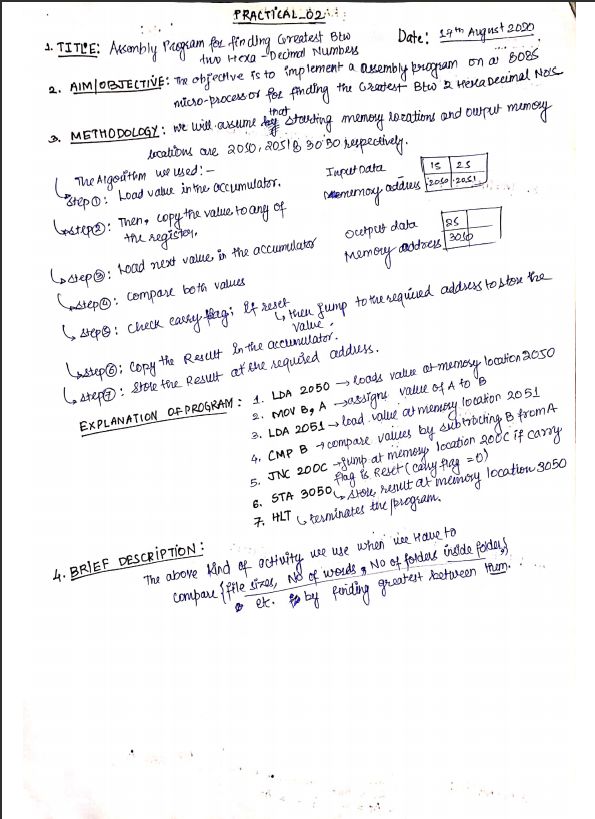 PRACTICAL_02
Date: 19th August 2020
1. TITLE: Assembly Program for finding Greatest Btw
two Hexa-Decimal Numbers
2. AIM/OBJECTIVE: The objective is to implement a assembly program on a 8085
micro-processor for finding the Greatest Btw 2 HexaDecimal No's
3. METHODOLOGY: we will assume that starting memory locations and output memory
locations are 2050, 2051 & 3050 respectively.
The Algorithm we used:-
Step 1: Load value in the accumulator.
Step 2: Then, copy the value to any of
the register.
Step 3: Load next value in the accumulator
Step 4: compare both values
Step 5: Check carry flag; if reset
then jump to the required address to store the
value.
Step 6: Copy the Result in the accumulator.
Step 7: Store the Result at the required address.
Input Data 15 25
memory address 2050 2051
Output data 25
Memory address 3050
EXPLANATION OF PROGRAM: 1. LDA 2050 → loads value at memory location 2050
2. MOV B, A → assigns value of A to B
3. LDA 2051 → load value at memory location 2051
4. CMP B → compare values by subtracting B from A
5. JNC 200C → jump at memory location 200C if carry
flag is Reset (carry flag = 0)
6. STA 3050 store result at memory location 3050
7. HLT terminates the program.
4. BRIEF DESCRIPTION:
The above kind of activity we use when we have to
compare {file sizes, No of words, No of folders inside folder,}
etc. by finding greatest between them.